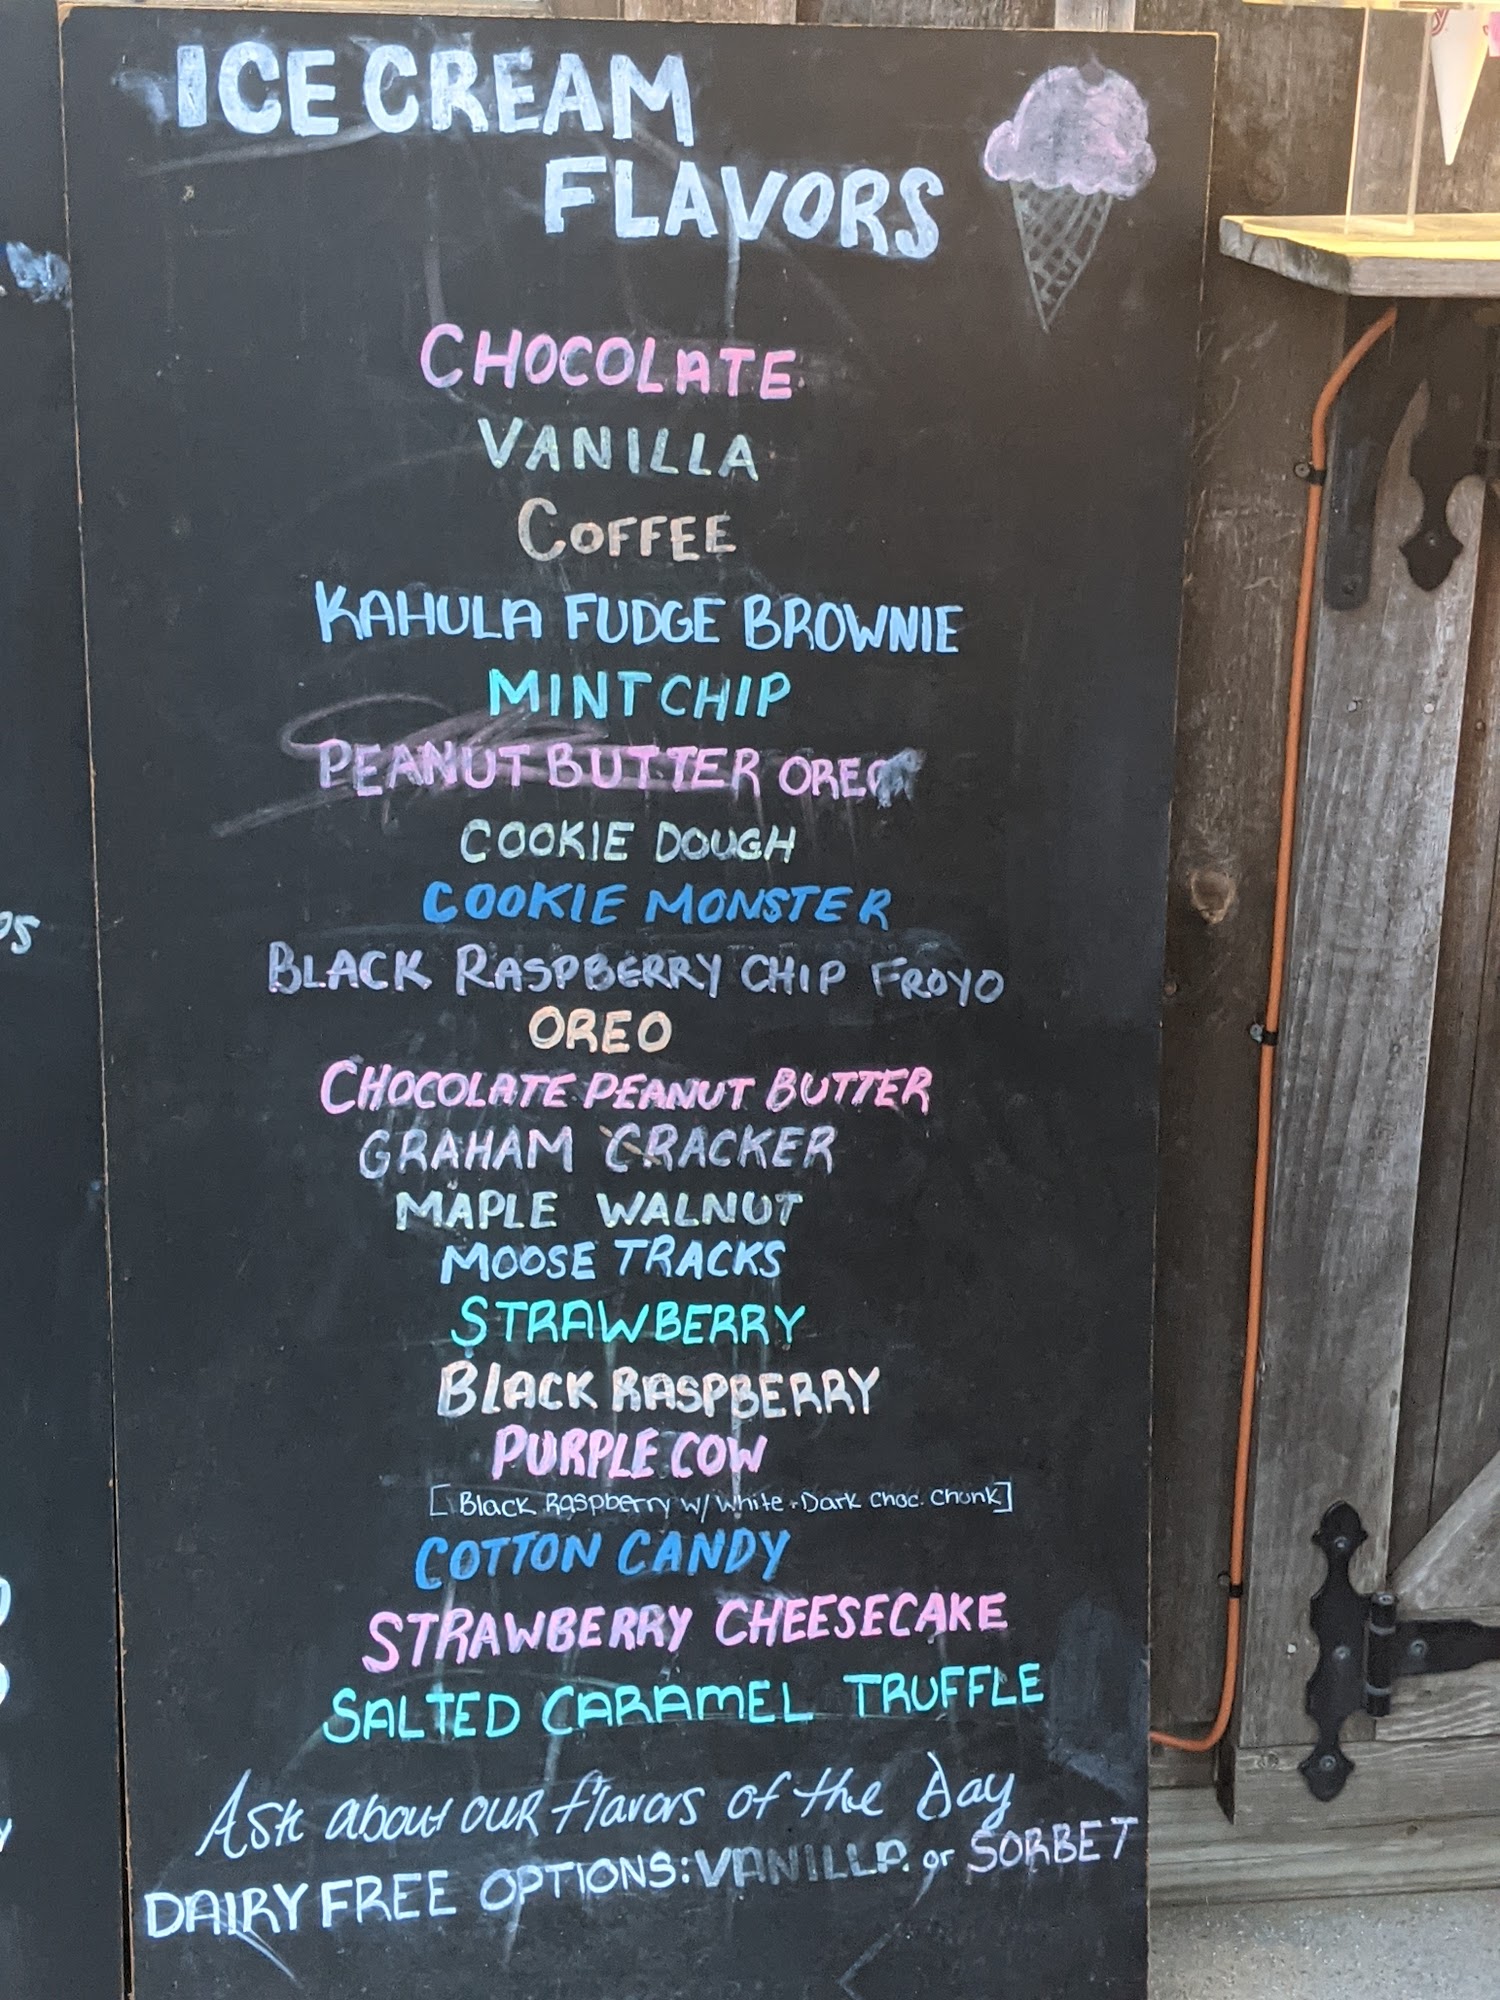 ICE CREAM
FLAVORS
CHOCOLATE
VANILLA
COFFEE
KAHULA FUDGE BROWNIE
MINT CHIP
PEANUT BUTTER OREO
COOKIE DOUGH
COOKIE MONSTER
BLACK RASPBERRY CHIP FROYO
OREO
CHOCOLATE PEANUT BUTTER
GRAHAM CRACKER
MAPLE WALNUT
MOOSE TRACKS
STRAWBERRY
BLACK RASPBERRY
PURPLE COW
[Black Raspberry w/ White + Dark Choc. Chunk]
COTTON CANDY
STRAWBERRY CHEESECAKE
SALTED CARAMEL TRUFFLE
Ask about our flavors of the Day
DAIRY FREE OPTIONS: VANILLA or SORBET